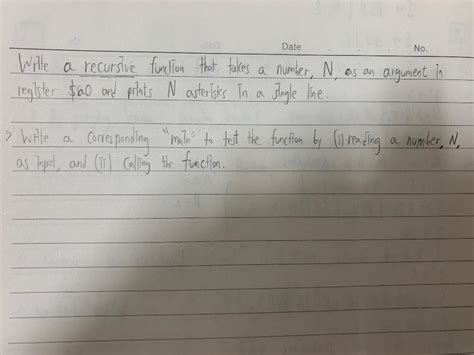 Date . . . No.
Write a recursive function that takes a number, N, as an argument in
register $a0 and prints N asterisks in a single line.
> Write a corresponding "main" to test the function by (i) reading a number, N,
as input, and (ii) calling the function.